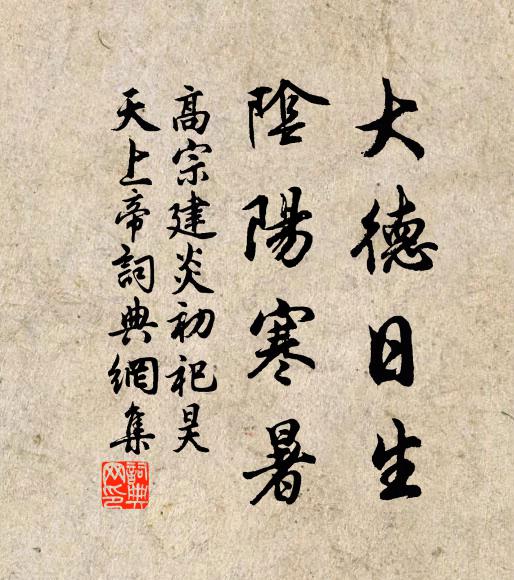 大德日生
陰陽寒暑
高宗建炎初祀昊
天上帝詞典網集
詞典
网印